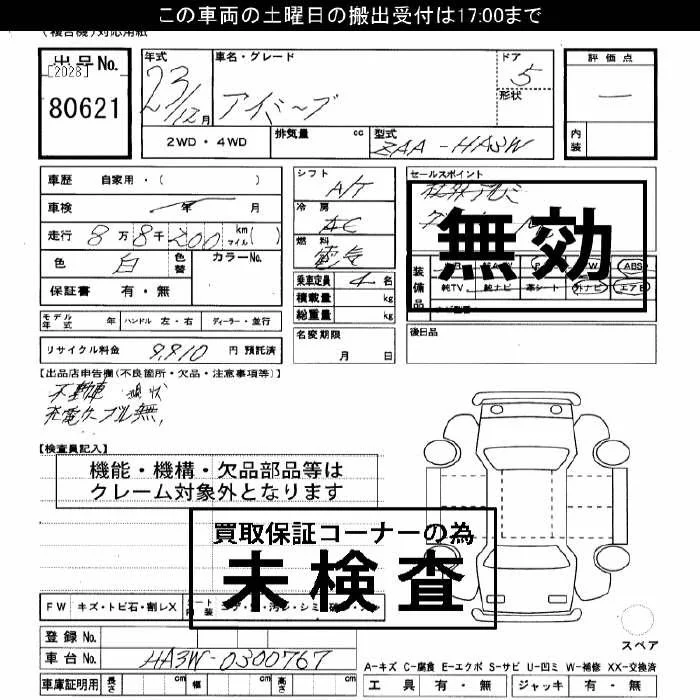 この車両の土曜日の搬出受付は17:00まで
(複合機)対応用紙
出品No.
[2028]
80621
年式
23/12月
車名・グレード
アイミーブ
ドア
5
形状
評価点
—
内装
2WD・4WD
排気量 cc
型式
ZAA-HA3W
車歴 自家用・( )
車検 年 月
走行 8万8千200 km マイル( )
色 白 色替 カラーNo.
保証書 有・無
シフト
A/T
冷房
AC
燃料
電気
乗車定員 4名
積載量 kg
総重量 kg
セールスポイント
無効
装備品
ABS
純TV 純ナビ 革シート 外ナビ エアB
モデル年式 年 ハンドル 左・右 ディーラー・並行
リサイクル料金 9,910 円 預託済
名変期限
月 日
後日品
【出品店申告欄(不良箇所・欠品・注意事項等)】
不動車 現状
充電ケーブル無,
【検査員記入】
機能・機構・欠品部品等は
クレーム対象外となります
買取保証コーナーの為
未検査
FW キズ・トビ石・割レX
登録No.
車台No. HA3W-0300767
車庫証明用 長さ cm 幅 cm 高さ cm
スペア
A-キズ C-腐食 E-エクボ S-サビ U-凹ミ W-補修 XX-交換済
工具 有・無 ジャッキ 有・無